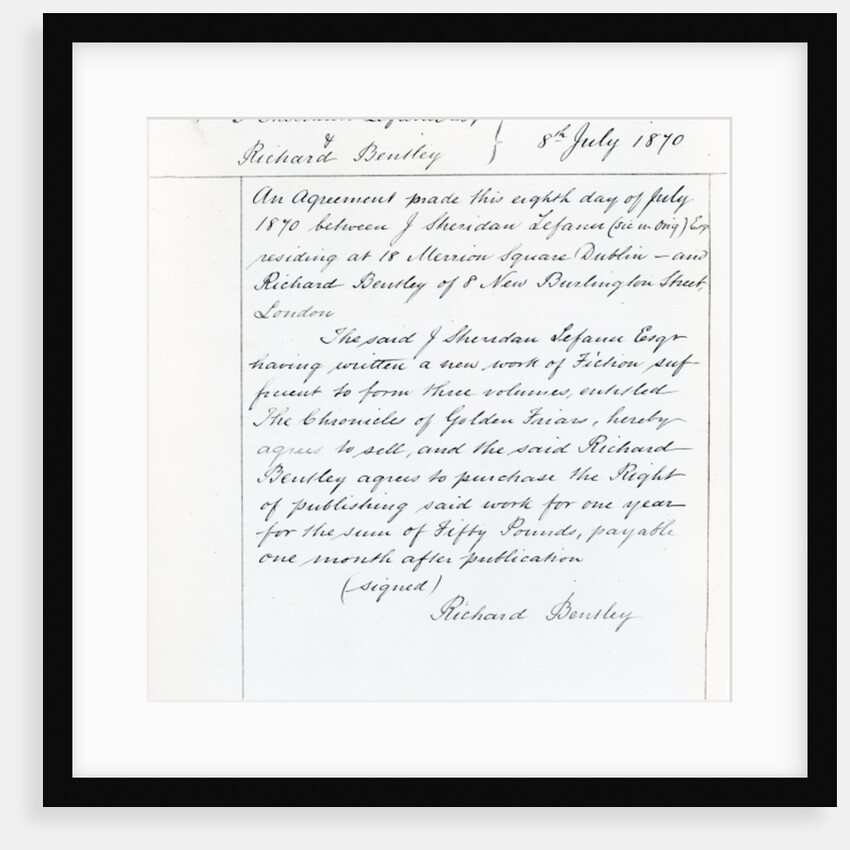 &
Richard Bentley } 8th July 1870
An Agreement made this eighth day of July
1870 between J Sheridan Lefanu (sic in Orig) Esqr
residing at 18 Merrion Square Dublin – and
Richard Bentley of 8 New Burlington Street,
London
The said J Sheridan Lefanu Esqr
having written a new work of Fiction suf
ficient to form three volumes, entitled
The Chronicles of Golden Friars, hereby
agrees to sell, and the said Richard
Bentley agrees to purchase the Right
of publishing said work for one year
for the sum of Fifty Pounds, payable
one month after publication
(signed)
Richard Bentley